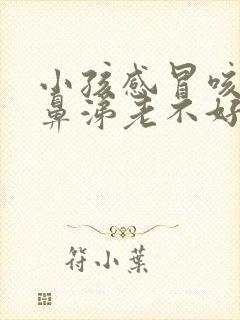 小孩感冒咳
鼻涕老不好
符小葉